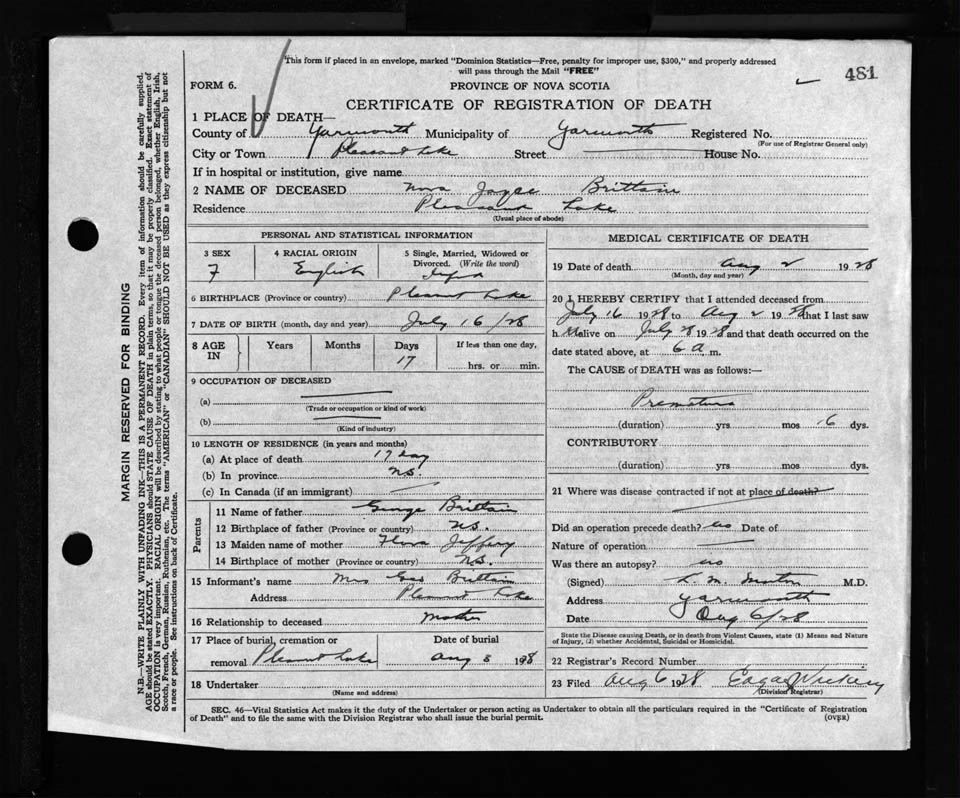 This form if placed in an envelope, marked "Dominion Statistics—Free, penalty for improper use, $300," and properly addressed
will pass through the Mail "FREE"
481
FORM 6.
PROVINCE OF NOVA SCOTIA
CERTIFICATE OF REGISTRATION OF DEATH
1 PLACE OF DEATH—
County of Yarmouth Municipality of Yarmouth Registered No.
(For use of Registrar General only)
City or Town Pleasant Lake Street House No.
If in hospital or institution, give name
2 NAME OF DECEASED Nova Brittain
Residence Pleasant Lake
(Usual place of abode)
PERSONAL AND STATISTICAL INFORMATION
3 SEX
F
4 RACIAL ORIGIN
English
5 Single, Married, Widowed or
Divorced. (Write the word)
6 BIRTHPLACE (Province or country) Pleasant Lake
7 DATE OF BIRTH (month, day and year) July 16/28
8 AGE IN
Years Months Days If less than one day,
17 hrs. or min.
9 OCCUPATION OF DECEASED
(a)
(Trade or occupation or kind of work)
(b)
(Kind of industry)
10 LENGTH OF RESIDENCE (in years and months)
(a) At place of death 17 day
(b) In province N.S.
(c) In Canada (if an immigrant)
Parents
11 Name of father George Brittain
12 Birthplace of father (Province or country) N.S.
13 Maiden name of mother Flora Jeffery
14 Birthplace of mother (Province or country) N.S.
15 Informant's name Mrs Geo Brittain
Address Pleasant Lake
16 Relationship to deceased mother
17 Place of burial, cremation or Date of burial
removal Pleasant Lake Aug 3 1928
18 Undertaker
(Name and address)
MEDICAL CERTIFICATE OF DEATH
19 Date of death Aug 2 1928
(Month, day and year)
20 I HEREBY CERTIFY that I attended deceased from
July 16 1928 to Aug 2 1928 that I last saw
h alive on July 28 1928 and that death occurred on the
date stated above, at 6 a. m.
The CAUSE of DEATH was as follows:—
Premature
(duration) yrs mos 16 dys.
CONTRIBUTORY
(duration) yrs mos dys.
21 Where was disease contracted if not at place of death?
Did an operation precede death? no Date of
Nature of operation
Was there an autopsy? no
(Signed) M.D.
Address Yarmouth
Date Aug 6/28
State the Disease causing Death, or in death from Violent Causes, state (1) Means and Nature
of Injury, (2) whether Accidental, Suicidal or Homicidal.
22 Registrar's Record Number
23 Filed Aug 6 1928 Edgar
(Division Registrar)
SEC. 46—Vital Statistics Act makes it the duty of the Undertaker or person acting as Undertaker to obtain all the particulars required in the "Certificate of Registration
of Death" and to file the same with the Division Registrar who shall issue the burial permit.
(OVER)
MARGIN RESERVED FOR BINDING
N.B.—WRITE PLAINLY WITH UNFADING INK—THIS IS A PERMANENT RECORD. Every item of information should be carefully supplied.
AGE should be stated EXACTLY. PHYSICIANS should STATE CAUSE OF DEATH in plain terms, so that it may be properly classified. Exact statement of
OCCUPATION is very important. RACIAL ORIGIN will be described by stating to what people or tongue the deceased person belonged, whether English, Irish,
Scotch, French, German, Russian, Ruthenian, etc. The terms "AMERICAN" or "CANADIAN" SHOULD NOT BE USED as they express citizenship but not
a race or people. See instructions on back of Certificate.